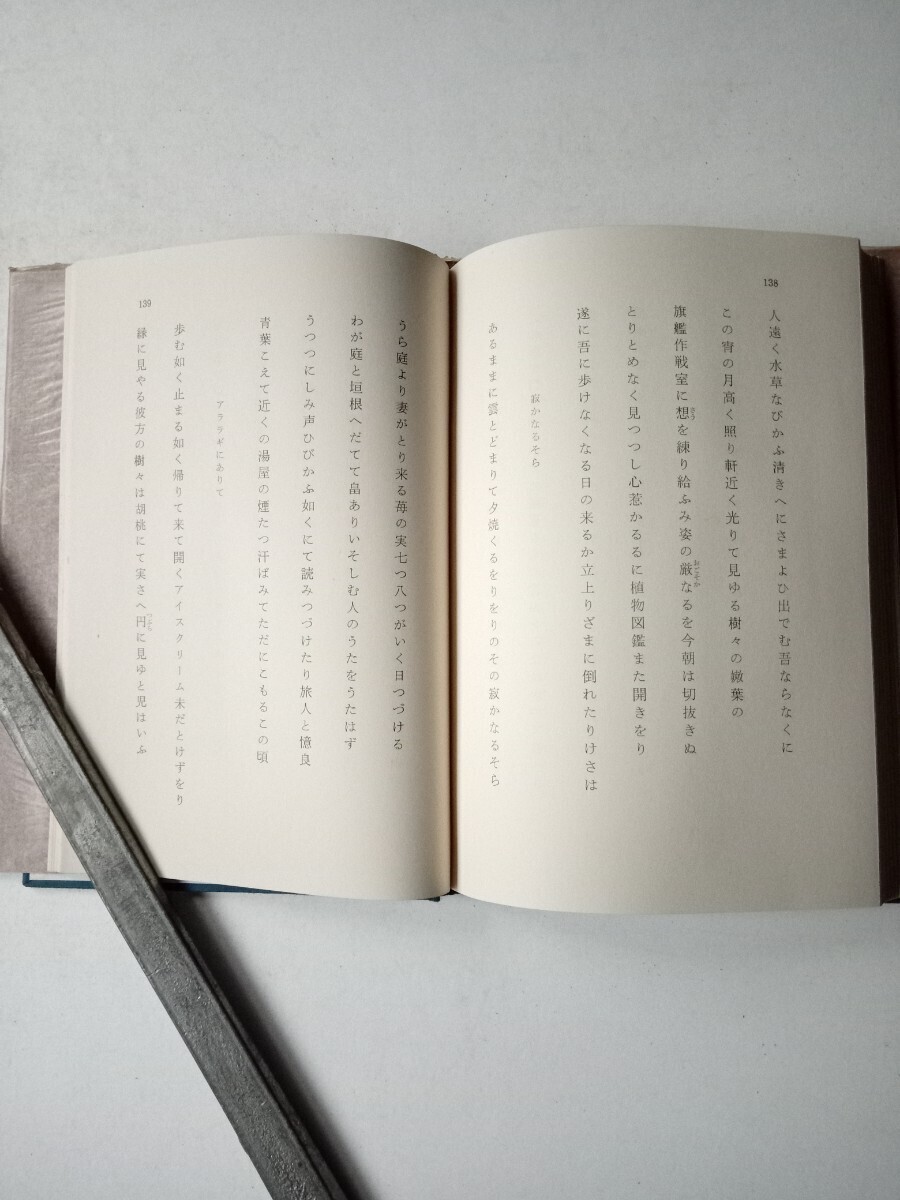 138
人遠く水草なびかふ清きへにさまよひ出でむ吾ならなくに
この宵の月高く照り軒近く光りて見ゆる樹々の嫩葉の
旗艦作戦室に想を練り給ふみ姿の厳なるを今朝は切抜きぬ
とりとめなく見つつし心惹かるるに植物図鑑また開きをり
遂に吾に歩けなくなる日の来るか立上りざまに倒れたりけさは
寂かなるそら
あるままに雲とどまりて夕焼くるをりをりのその寂かなるそら
139
うら庭より妻がとり来る苺の実七つ八つがいく日つづける
わが庭と垣根へだてて畠ありいそしむ人のうたをうたはず
うつつにしみ声ひびかふ如くにて読みつづけたり旅人と憶良
青葉こえて近くの湯屋の煙たつ汗ばみてただにこもるこの頃
アララギにありて
歩む如く止まる如く帰りて来て開くアイスクリーム未だとけずをり
縁に見やる彼方の樹々は胡桃にて実さへ円に見ゆと児はいふ